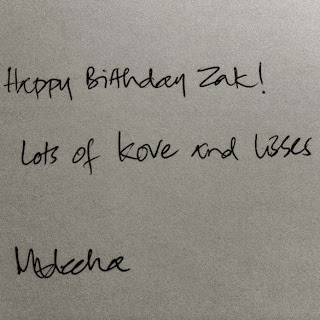 Happy Birthday Zak!
Lots of kove and kisses
Madeeha